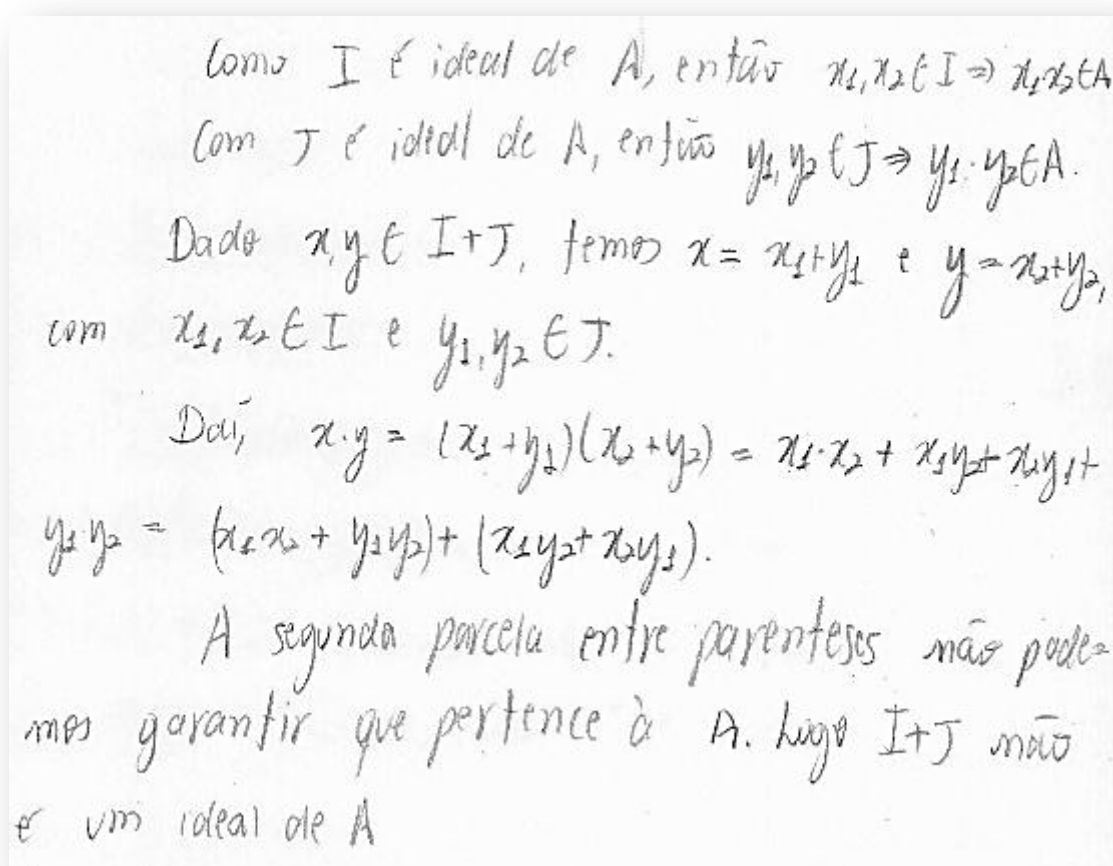 Como I é ideal de A, então x₁,x₂ ∈ I ⇒ x₁x₂ ∈ A
Com J é ideal de A, então y₁,y₂ ∈ J ⇒ y₁·y₂ ∈ A.
Dado x,y ∈ I+J, temos x = x₁+y₁ e y = x₂+y₂,
com x₁,x₂ ∈ I e y₁,y₂ ∈ J.
Daí, x·y = (x₁+y₁)(x₂+y₂) = x₁·x₂ + x₁y₂ + x₂y₁ +
y₁·y₂ = (x₁x₂ + y₁y₂) + (x₁y₂ + x₂y₁).
A segunda parcela entre parenteses não pode=
mos garantir que pertence à A. Logo I+J não
é um ideal de A